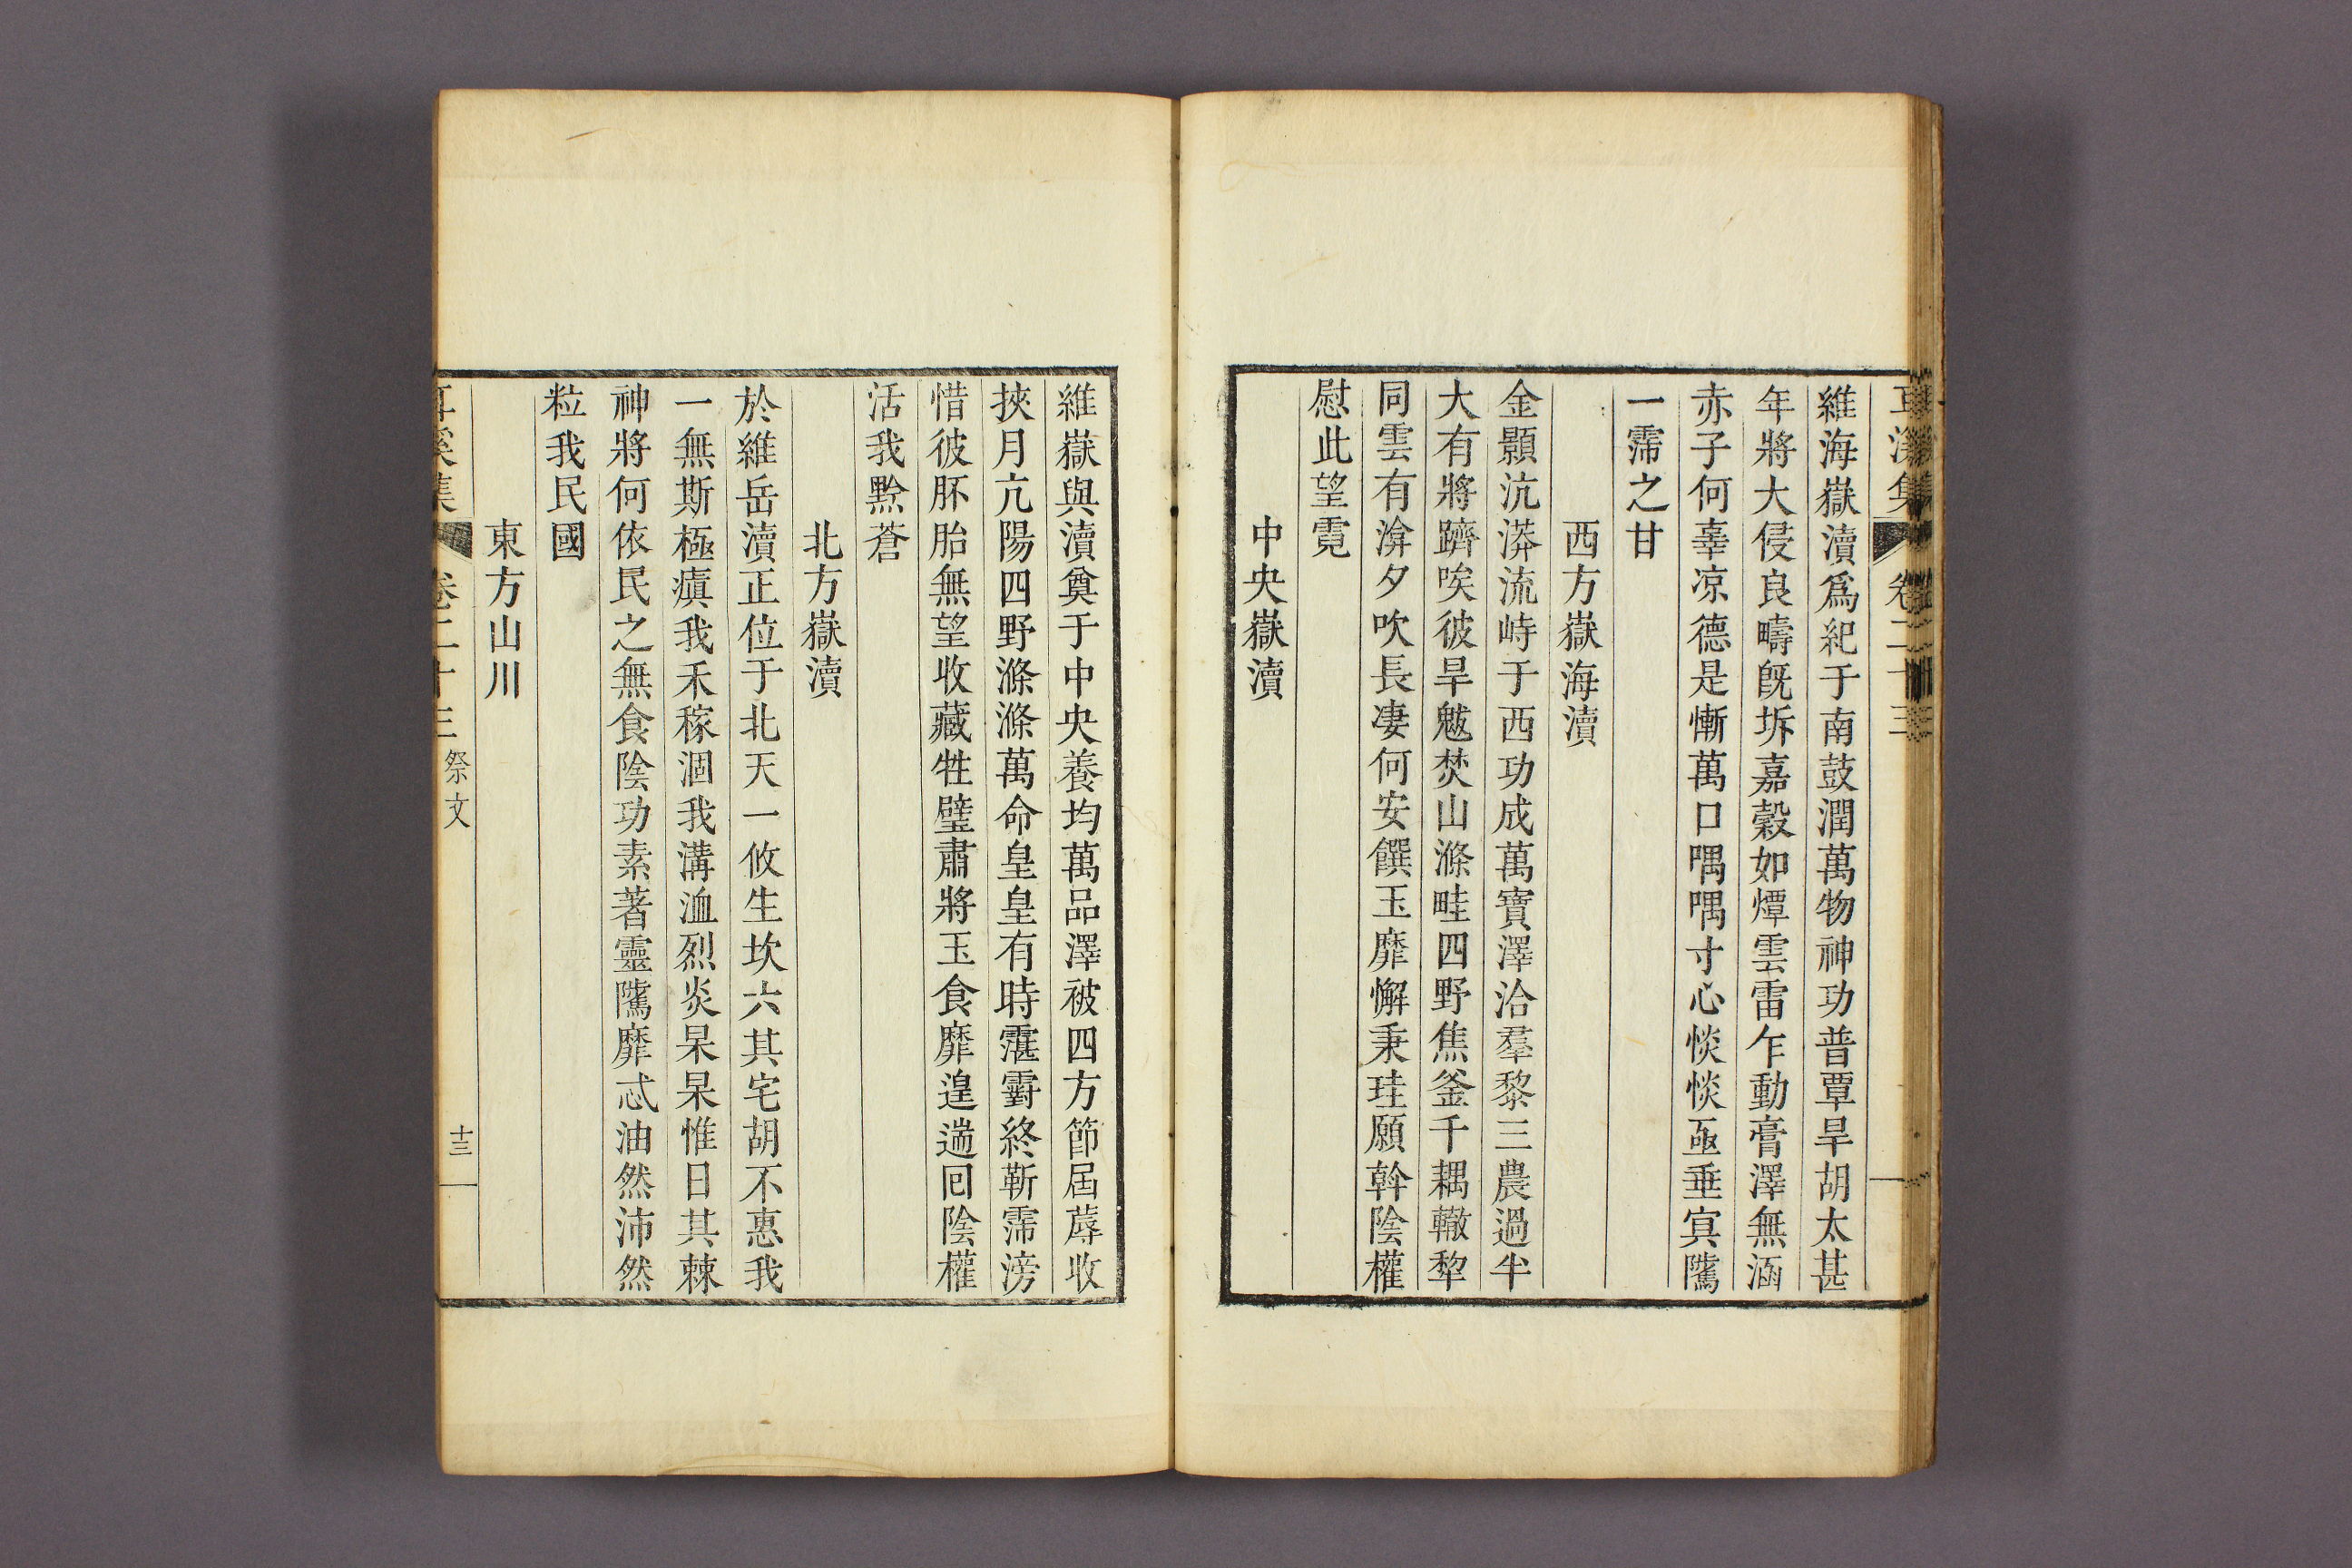 耳溪集 卷二十三
維海嶽瀆爲紀于南鼓潤萬物神功普覃旱胡太甚
年將大侵良疇旣坼嘉穀如燂雲雷乍動膏澤無涵
赤子何辜凉德是慚萬口喁喁寸心惔惔亟垂冥隲
一霈之甘
西方嶽海瀆
金顥沆漭流峙于西功成萬寶澤洽羣黎三農過半
大有將躋唉彼旱魃焚山滌畦四野焦釜千耦轍犂
同雲有渰夕吹長凄何安饌玉靡懈秉珪願斡陰權
慰此望霓
中央嶽瀆
維嶽與瀆奠于中央養均萬品澤被四方節屆蓐收
挾月亢陽四野滌滌萬命皇皇有時霮䨴終靳霈滂
惜彼胚胎無望收藏牲璧肅將玉食靡遑遄回陰權
活我黔蒼
北方嶽瀆
於維岳瀆正位于北天一攸生坎六其宅胡不惠我
一無斯極瘨我禾稼涸我溝洫烈炎杲杲惟日其棘
神將何依民之無食陰功素著靈隲靡忒油然沛然
粒我民國
東方山川
耳溪集 卷二十三 祭文 十三